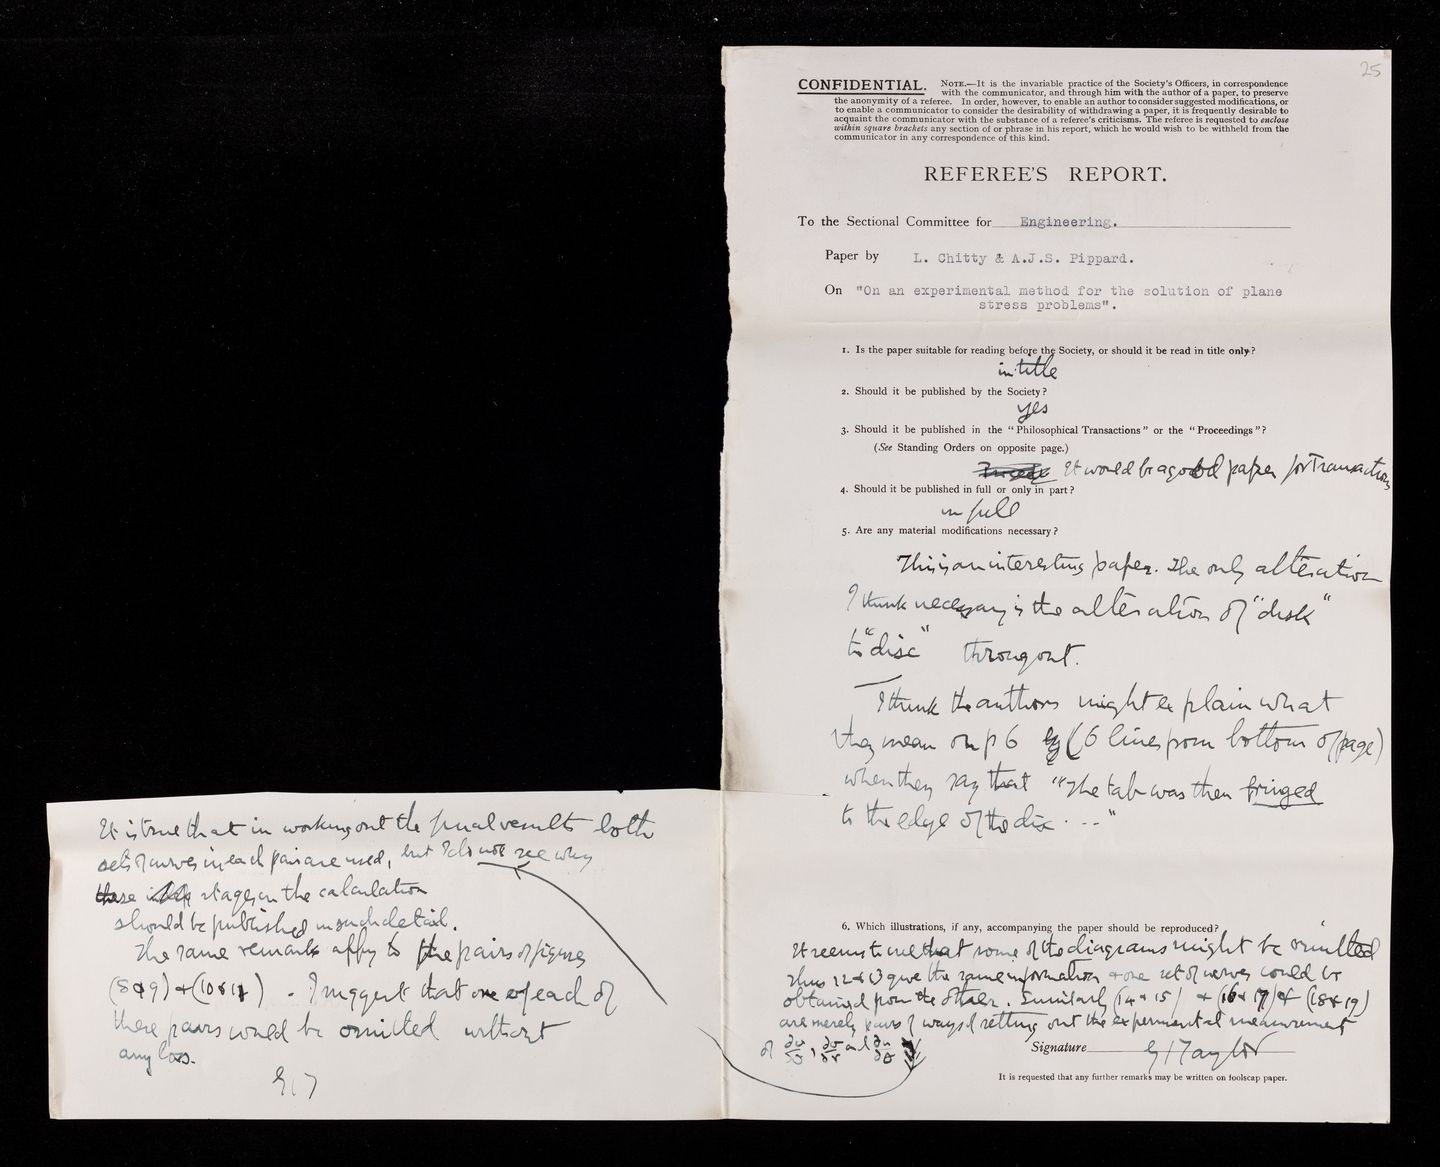 25
CONFIDENTIAL. NOTE.—It is the invariable practice of the Society's Officers, in correspondence
with the communicator, and through him with the author of a paper, to preserve
the anonymity of a referee. In order, however, to enable an author to consider suggested modifications, or
to enable a communicator to consider the desirability of withdrawing a paper, it is frequently desirable to
acquaint the communicator with the substance of a referee's criticisms. The referee is requested to enclose
within square brackets any section of or phrase in his report, which he would wish to be withheld from the
communicator in any correspondence of this kind.
REFEREE'S REPORT.
To the Sectional Committee for Engineering.
Paper by L. Chitty & A.J.S. Pippard.
On "On an experimental method for the solution of plane
stress problems".
1. Is the paper suitable for reading before the Society, or should it be read in title only?
in title
2. Should it be published by the Society?
yes
3. Should it be published in the "Philosophical Transactions" or the "Proceedings"?
(See Standing Orders on opposite page.)
It would be a good paper for Transactions
4. Should it be published in full or only in part?
in full
5. Are any material modifications necessary?
This is an interesting paper. The only alteration
I think necessary is the alteration of "disk"
to "disc" througout.
I think the authors might explain what
they mean on p 6 (6 lines from bottom of page)
when they say that "The tab was then fringed
to the edge of the disc . --"
6. Which illustrations, if any, accompanying the paper should be reproduced?
It seems to me that some of the diagrams might be omitted
Thus 12 & 13 give the same information & one set of curves could be
obtained from the other. Similarly (14 & 15) & (16 & 17) & (18 & 19)
are merely pairs of ways of setting out the experimental measurement
of and
Signature G I Taylor
It is requested that any further remarks may be written on foolscap paper.
It is true that in working out the final results both
sets of curves in each pair are used, but I do not see why
these stages in the calculation
should be published in such detail.
The same remarks apply to the pairs of figures
(8 & 9) & (10 & 11) . I suggest that one of each of
these pairs could be omitted without
any loss.
G I T